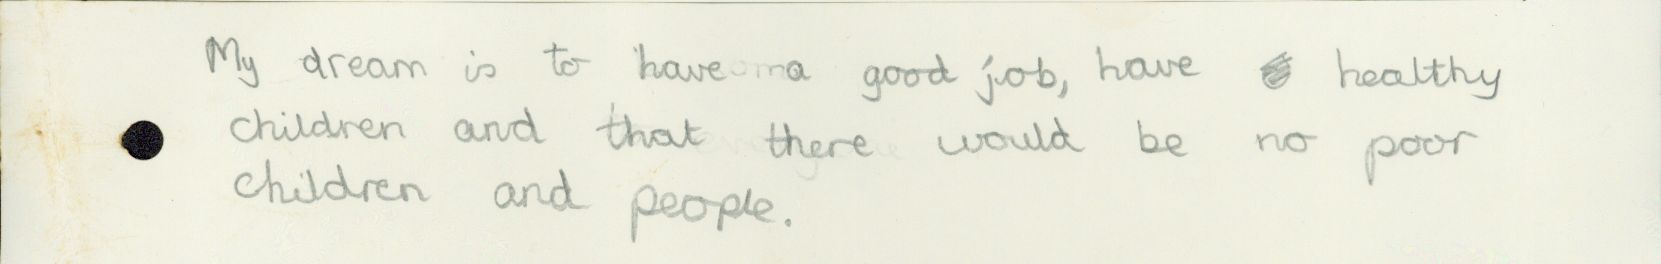 My dream is to have a good job, have healthy
children and that there would be no poor
children and people.